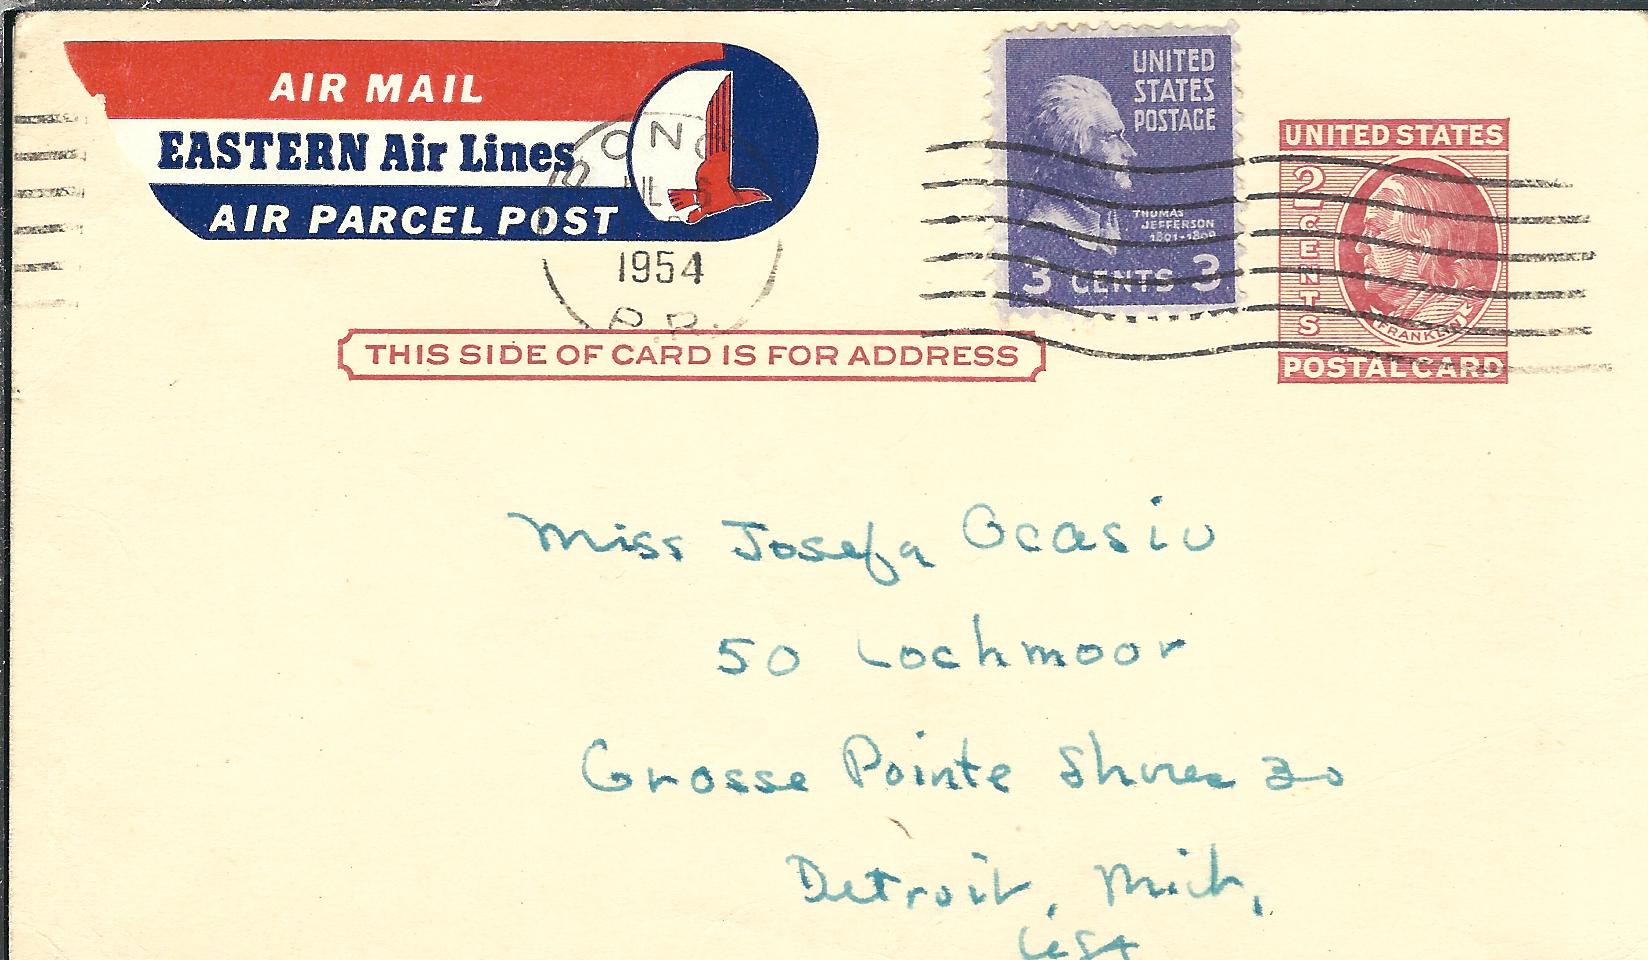 AIR MAIL
EASTERN Air Lines
AIR PARCEL POST
1954
P.R.
UNITED
STATES
POSTAGE
THOMAS
JEFFERSON
1801-1809
3 CENTS 3
UNITED STATES
2 CENTS
FRANKLIN
POSTAL CARD
THIS SIDE OF CARD IS FOR ADDRESS
Miss Josefa Ocasio
50 Lochmoor
Grosse Pointe Shores 30
Detroit, Mich,
USA